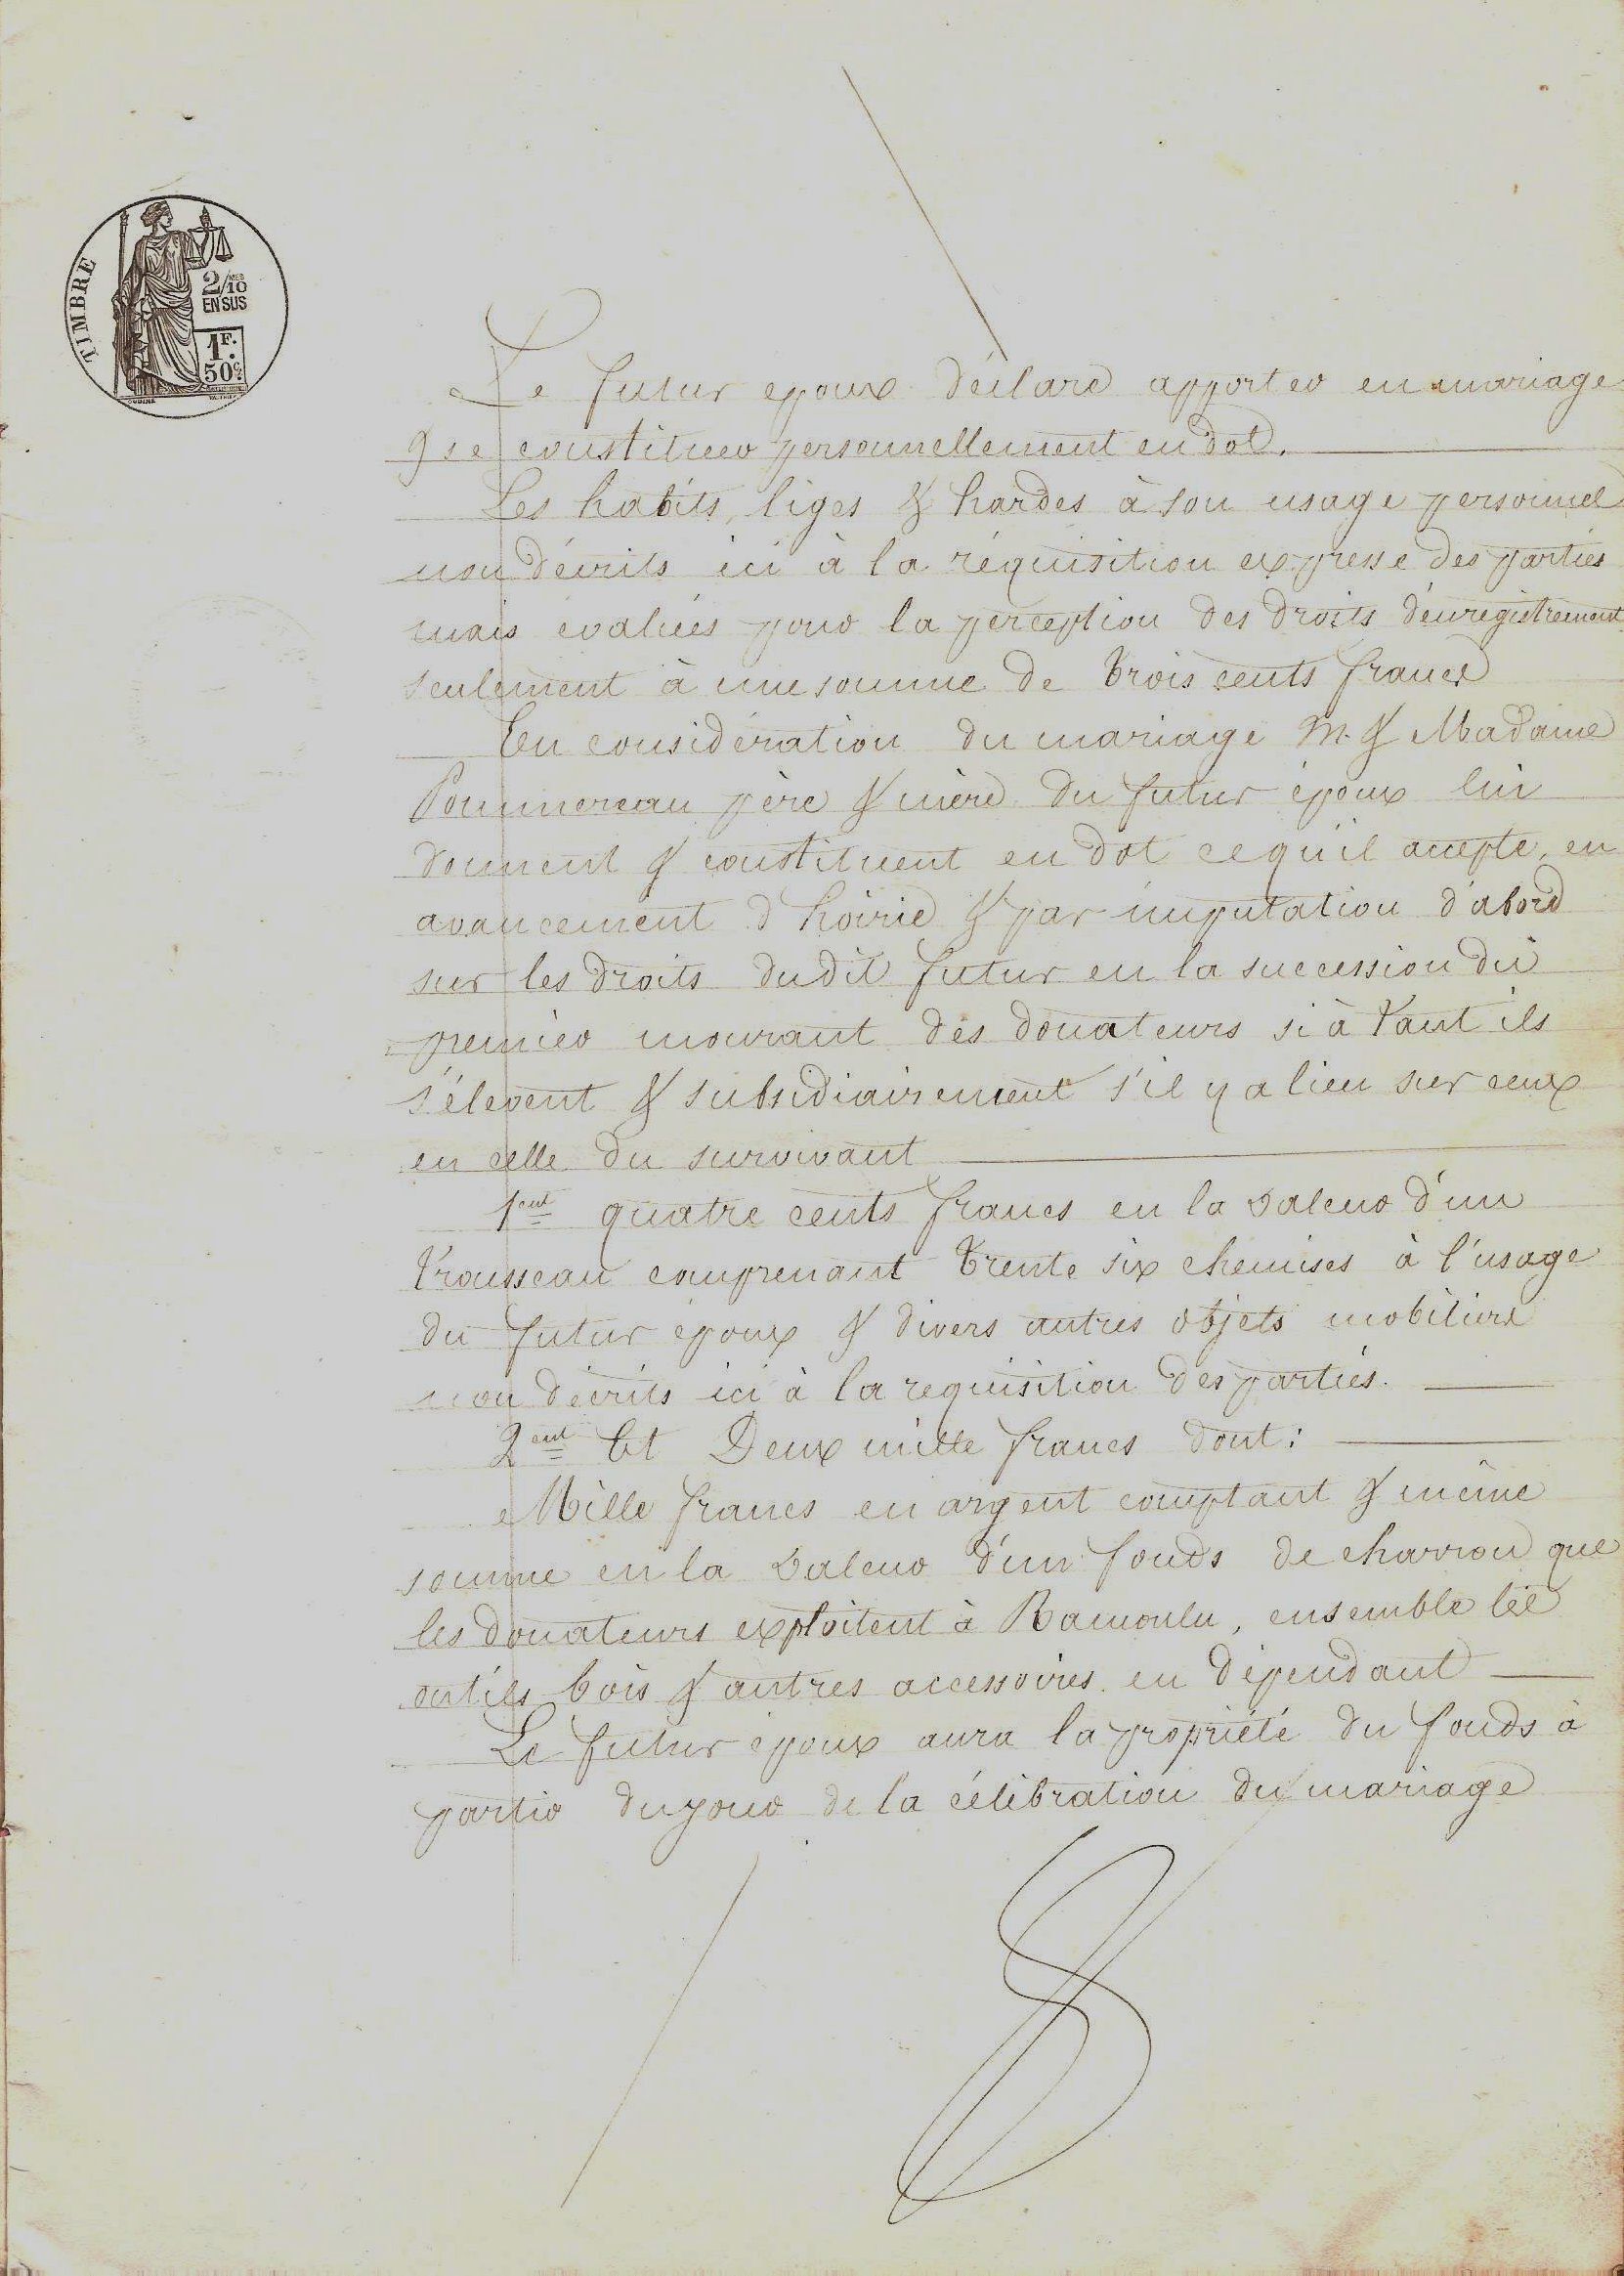 TIMBRE
2/10 MES
EN SUS
1F.
50c.
Le futur époux déclare apporter en mariage
& se constituer personnellement en dot.
Les habits, liges & hardes à son usage personnel
non décrits ici à la réquisition expresse des parties
mais évalués pour la perception des droits d'enregistrement
seulement à une somme de trois cents francs
En considération du mariage M. & Madame
Pommereau père & mère du futur époux lui
donnent & constituent en dot ce qu'il accepte, en
avancement d'hoirie & par imputation d'abord
sur les droits dudit futur en la succession du
premier mourant des donateurs si à tant ils
s'élevent & subsidiairement s'il y a lieu sur ceux
en celle du survivant
1ent quatre cents francs en la valeur d'un
trousseau comprenant trente six chemises à l'usage
du futur époux & divers autres objets mobiliers
non décrits ici à la requisition des parties.
2ent Et Deux mille francs dont:
Mille francs en argent comptant & même
somme en la valeur d'un fonds de charron que
les donateurs exploitent à Ramoulu, ensemble les
outils bois & autres accessoires en dépendant
Le futur époux aura la propriété du fonds à
partir du jour de la célébration du mariage